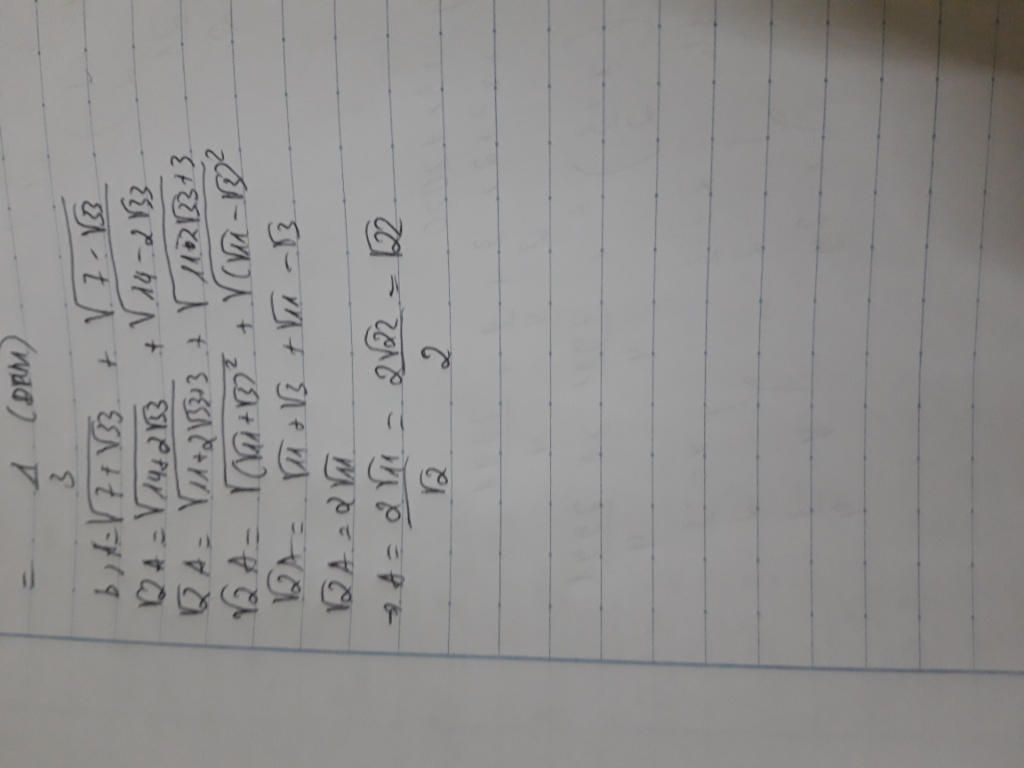 = 1/3 (ĐPCM)
b, A = √(7+√33) + √(7-√33)
√2 A = √(14+2√33) + √(14-2√33)
√2 A = √(11+2√33+3) + √(11-2√33+3)
√2 A = √(√11+√3)² + √(√11-√3)²
√2 A = √11 + √3 + √11 - √3
√2 A = 2√11
→ A = 2√11/√2 = 2√22/2 = √22